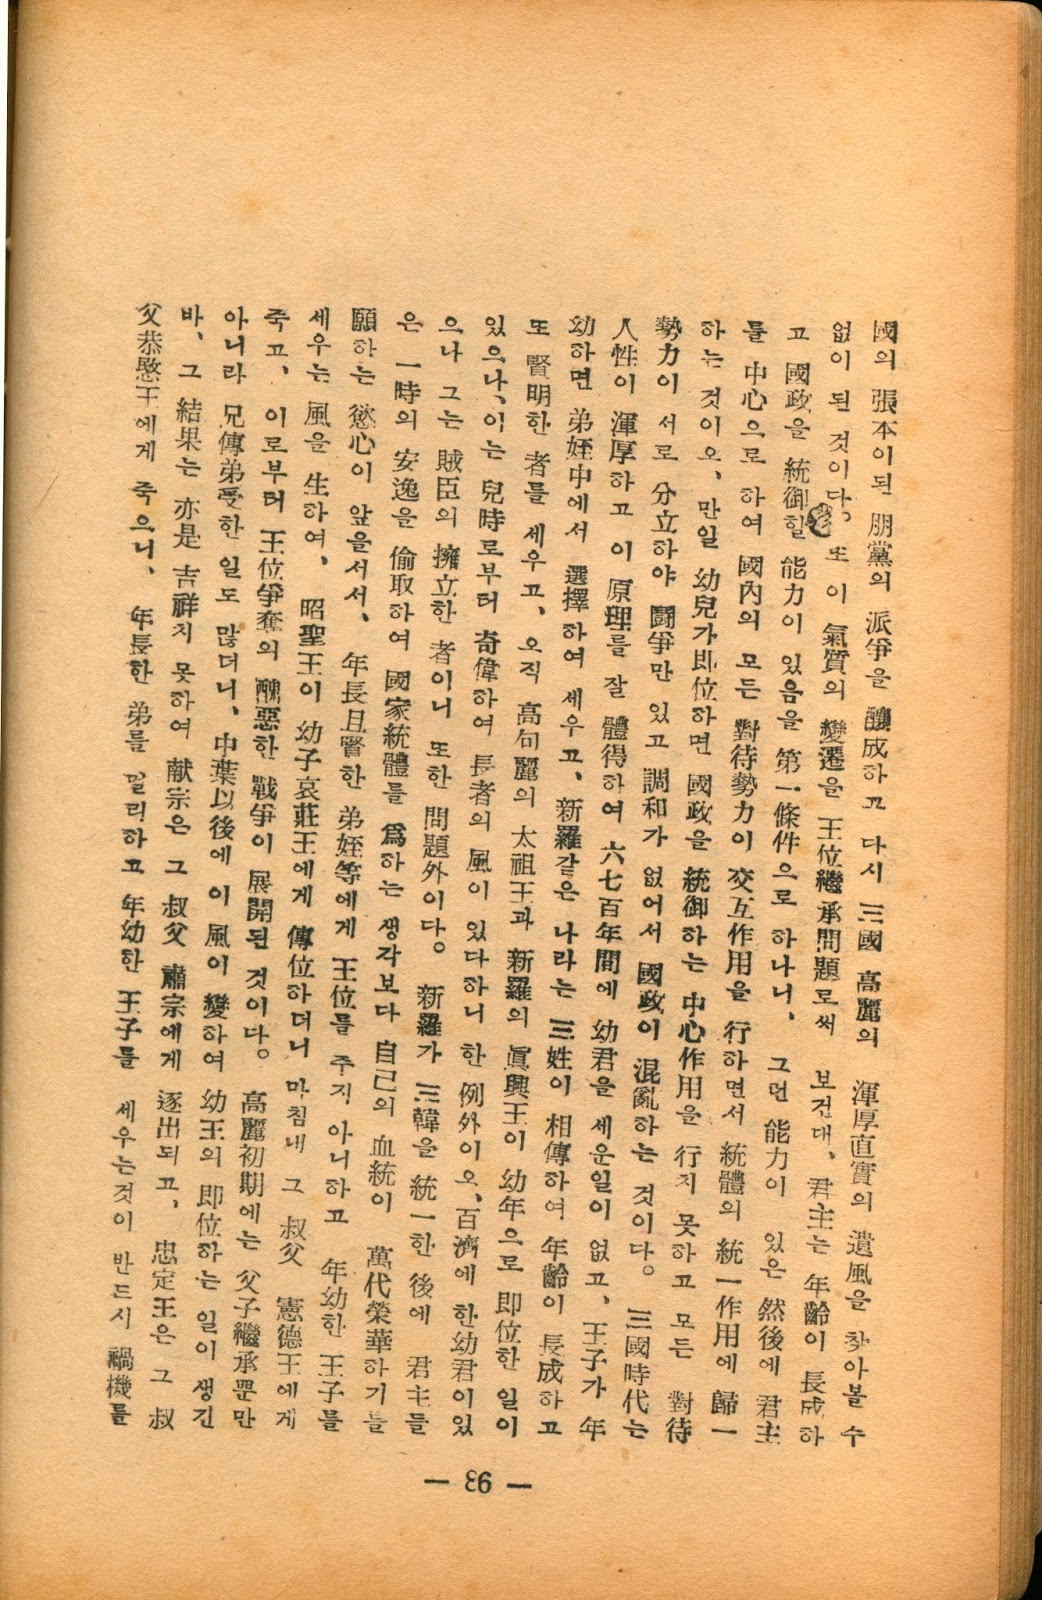 國의 張本이된 朋黨의 派爭을 釀成하고 다시 三國 高麗의 渾厚直實의 遺風을 찾아볼 수
없이 된 것이다。 또 이 氣質의 變遷을 王位繼承問題로써 보건대、君主는 年齡이 長成하
고 國政을 統御할 能力이 있음을 第一條件으로 하나니、 그런 能力이 있은 然後에 君主
를 中心으로 하여 國內의 모든 對待勢力이 交互作用을 行하면서 統體의 統一作用에 歸一
하는 것이오、만일 幼兒가 即位하면 國政을 統御하는 中心作用을 行치 못하고 모든 對待
勢力이 서로 分立하야 鬪爭만 있고 調和가 없어서 國政이 混亂하는 것이다。 三國時代는
人性이 渾厚하고 이 原理를 잘 體得하여 六七百年間에 幼君을 세운일이 없고、王子가 年
幼하면 弟姪中에서 選擇하여 세우고、新羅같은 나라는 三姓이 相傳하여 年齡이 長成하고
또 賢明한 者를 세우고、오직 高句麗의 太祖王과 新羅의 眞興王이 幼年으로 即位한 일이
있으나、이는 兒時로부터 奇偉하여 長者의 風이 있다하니 한 例外이오、百濟에 한幼君이있
으나 그는 賊臣의 擁立한 者이니 또한 問題外이다。 新羅가 三韓을 統一한 後에 君主들
은 一時의 安逸을 偷取하여 國家統體를 爲하는 생각보다 自己의 血統이 萬代榮華하기를
願하는 慾心이 앞을서서、 年長且賢한 弟姪等에게 王位를 주지 아니하고 年幼한 王子를
세우는 風을 生하여、 昭聖王이 幼子哀莊王에게 傳位하더니 마침내 그 叔父 憲德王에게
죽고、 이로부터 王位爭奪의 醜惡한 戰爭이 展開된 것이다。 高麗初期에는 父子繼承뿐만
아니라 兄傳弟受한 일도 많더니、中葉以後에 이 風이 變하여 幼王의 即位하는 일이 생긴
바、그 結果는 亦是 吉祥치 못하여 献宗은 그 叔父 肅宗에게 逐出되고、 忠定王은 그 叔
父恭愍王에게 죽으니、 年長한 弟를 멀리하고 年幼한 王子를 세우는것이 반드시 禍機를
— 93 —